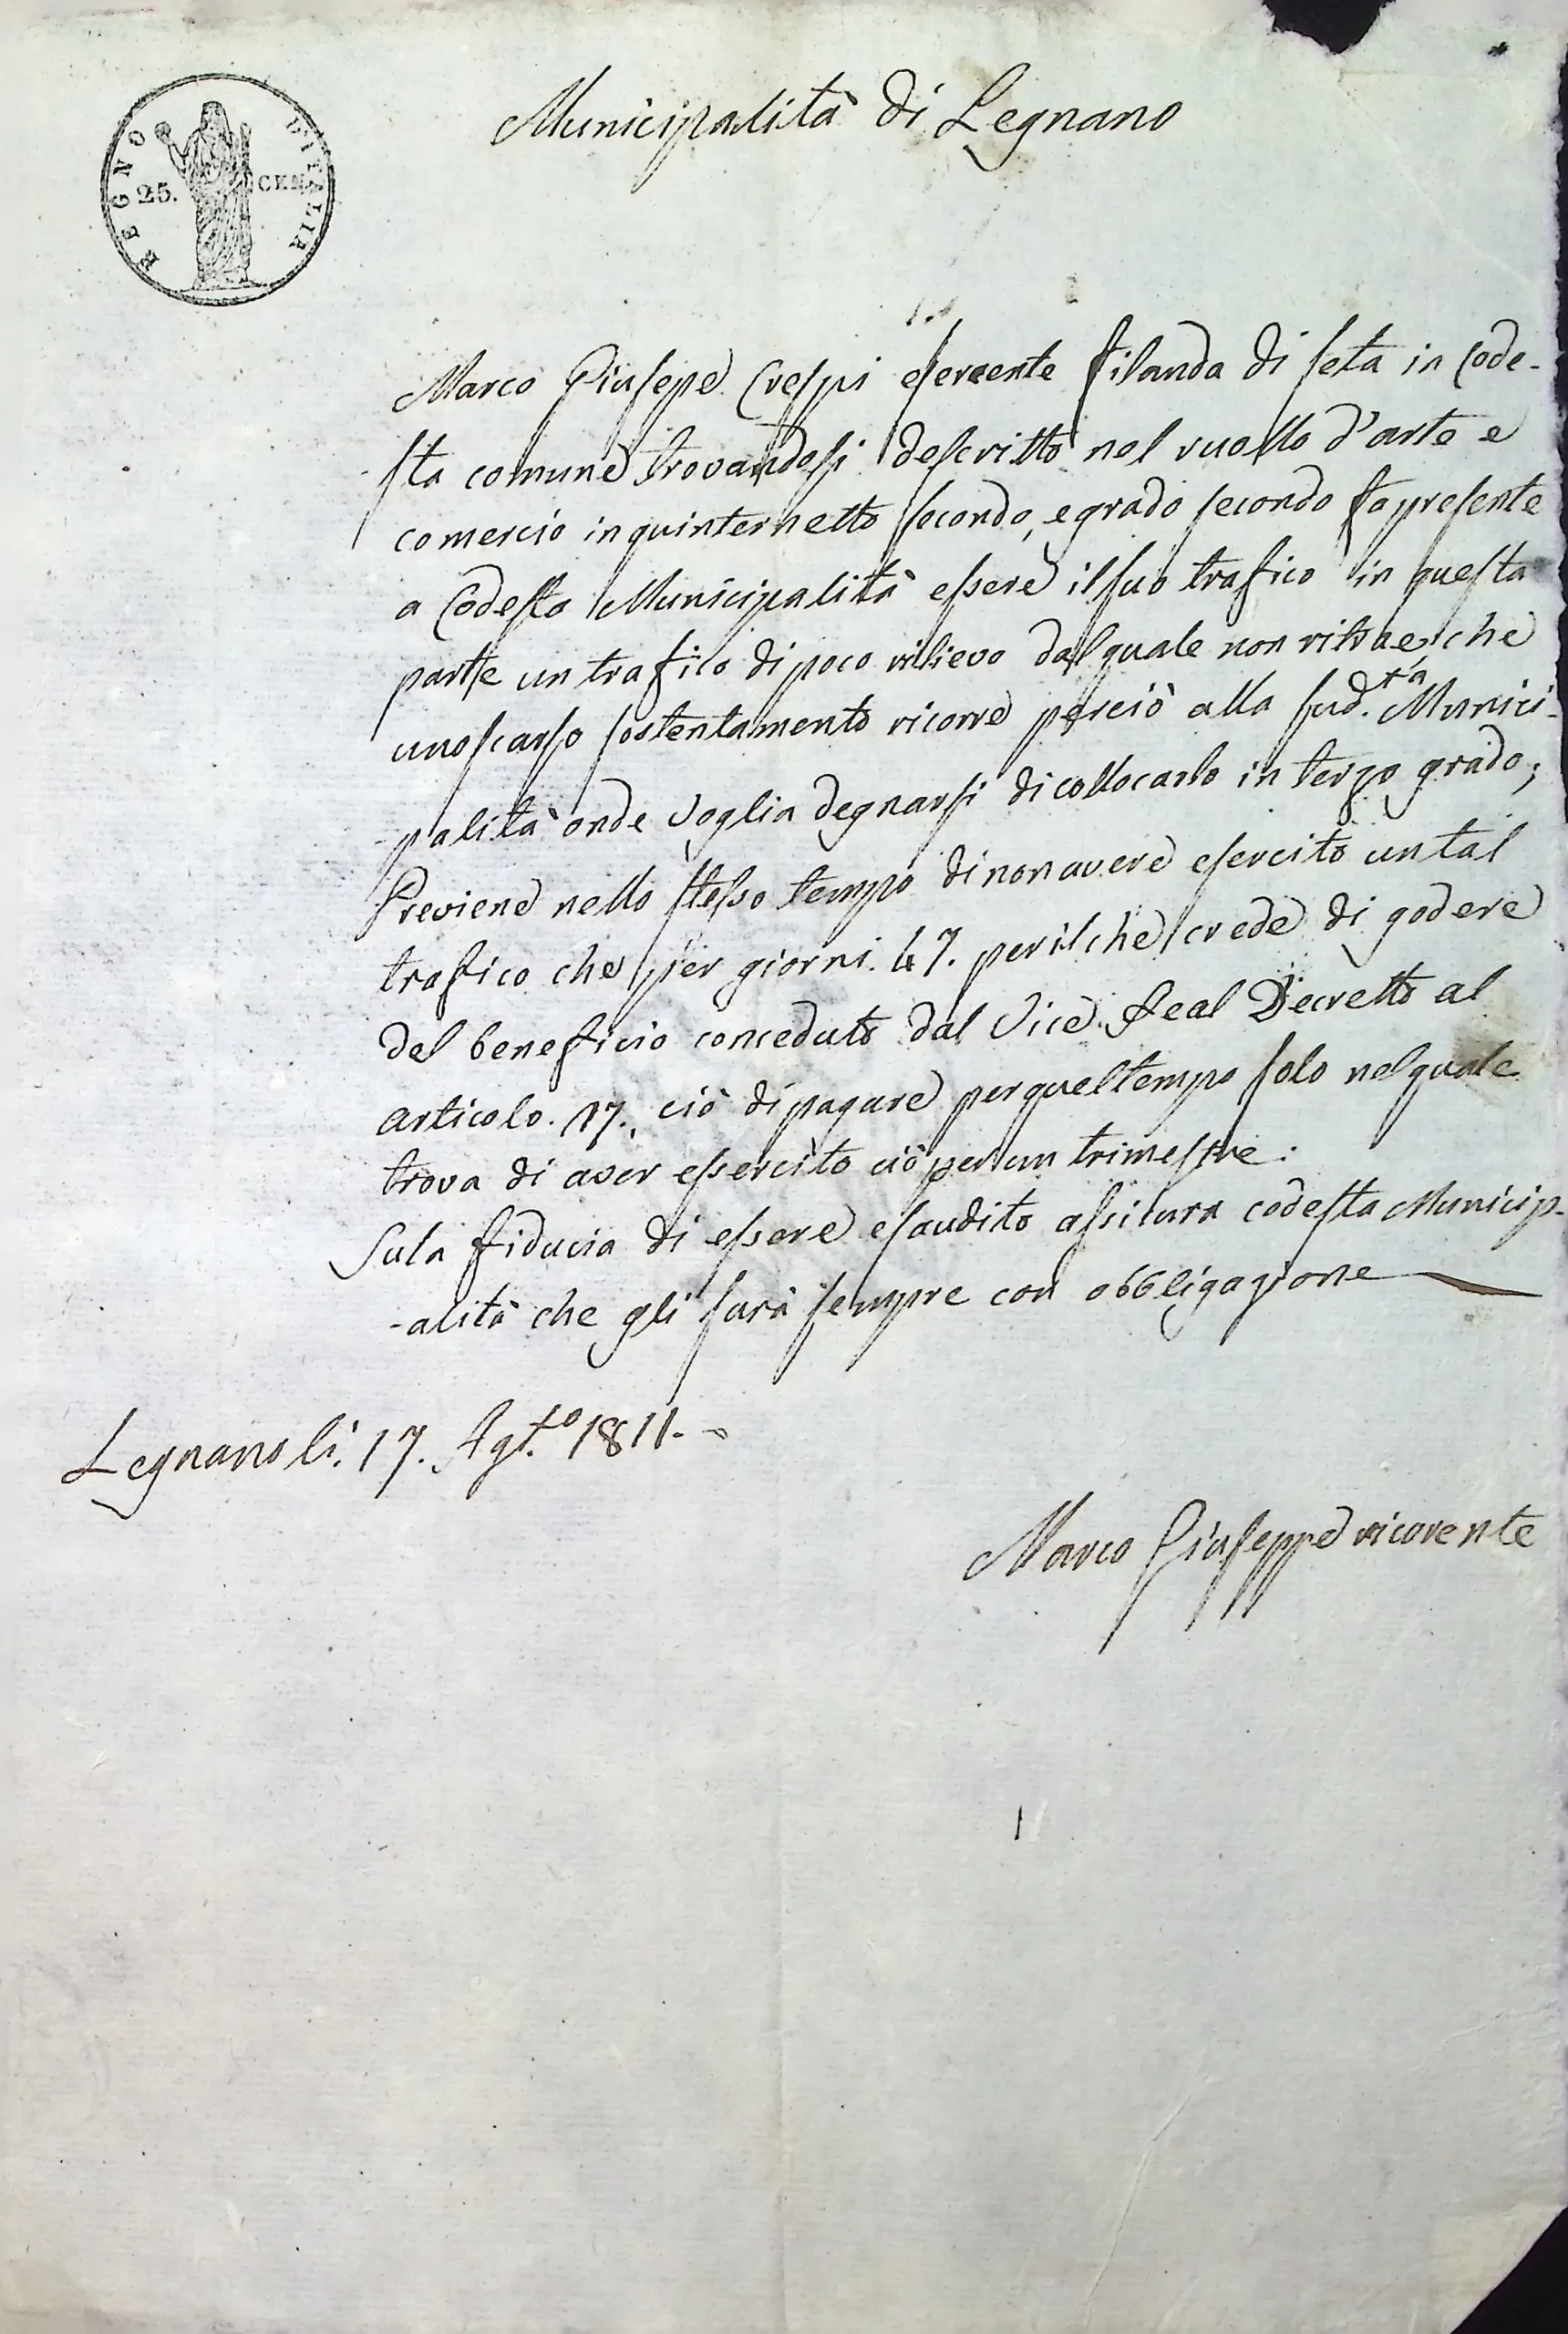 Municipalità di Legnano
REGNO D'ITALIA
25. CEN.
Marco Giusepe Crespi esercente filanda di seta in Code-
sta comune trovandosi descritto nel ruollo d'arte e
comercio in quinternetto secondo, e grado secondo fa presente
a Codesta Municipalità essere il suo trafico in questa
parte un trafico di poco rilievo dal quale non ritrae, che
uno scarso sostentamento ricorre perciò alla sud.ta Munici-
palità onde voglia degnarsi di collocarlo in terzo grado;
Previene nello stesso tempo di non avere esercito un tal
trafico che per giorni. 47. per il che crede di godere
del beneficio conceduto dal Vice Real Decretto al
articolo. 17., ciò di pagare per quel tempo solo nel quale
trova di aver essercito ciò per un trimestre:
Sula fiducia di essere esaudito assicura codesta Municip-
-alità che gli sarà sempre con obbligazione
Legnano li. 17. Agt.o 1811.
Marco Giuseppe ricorente